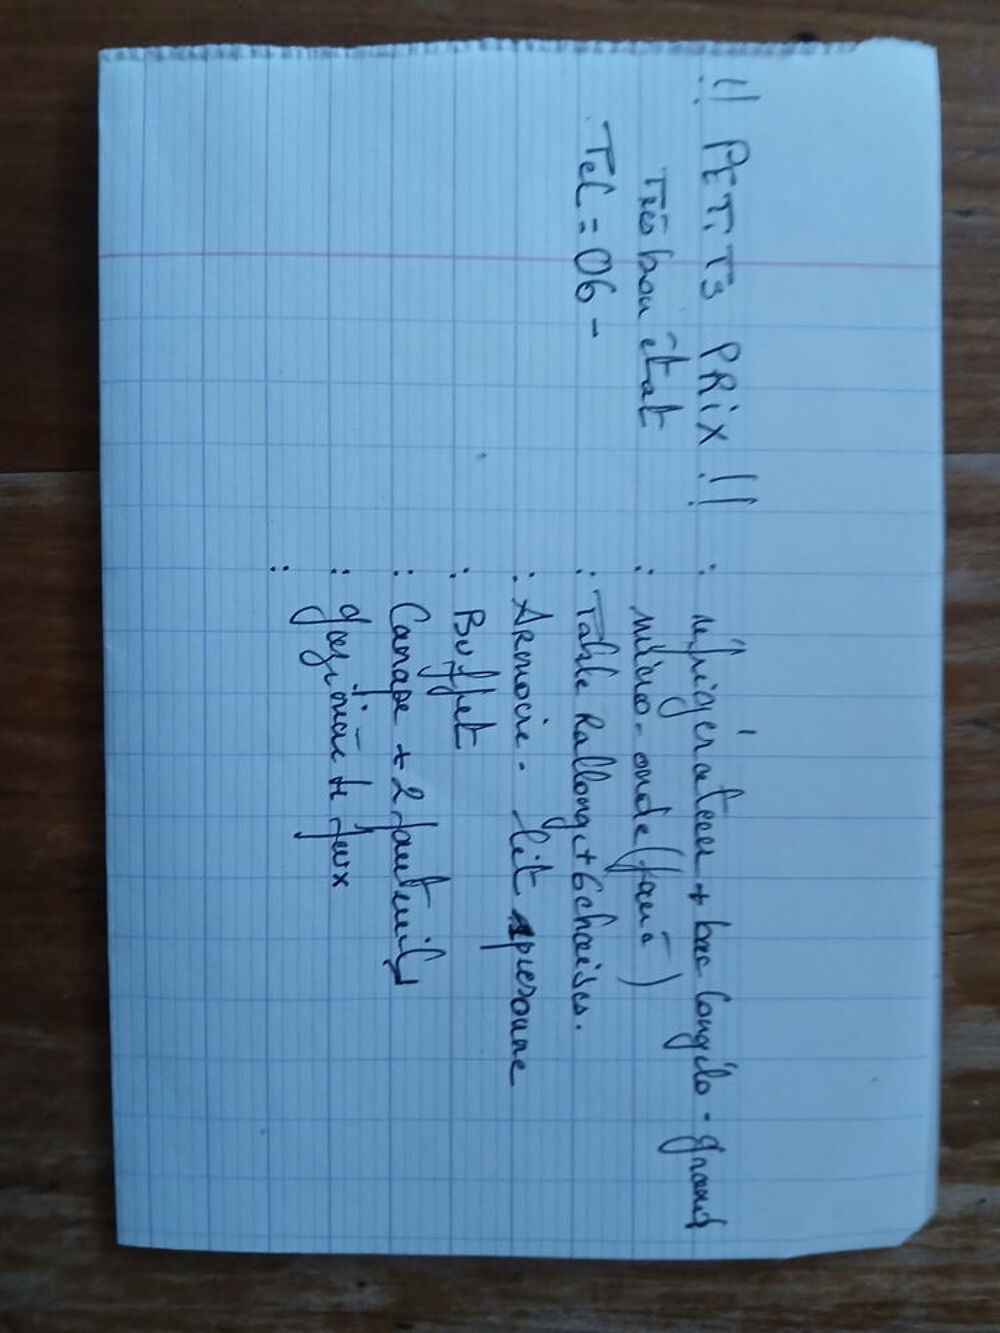 !! PETiTS PRiX !!
Très bon état
Tel = 06 -
: réfrigérateur + bac congélo - grand
: micro-onde (four)
: Table Rallonge + 6 chaises.
: Armoire - lit 1 personne
: Buffet
: Canape + 2 fauteuils
: gazinière 4 feux
: